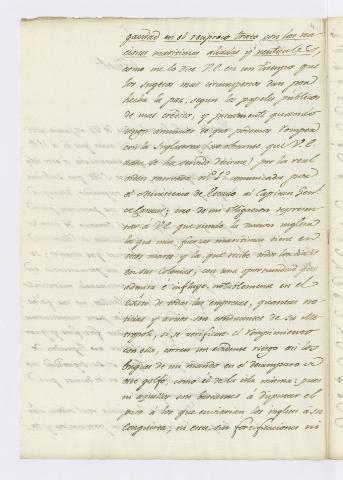 guedad en el reciproco trato con las na-
ciones maritimas aliadas y neutrales,
como me lo dice V.E. en un tiempo que
los sugetos mas circunspectos dan por
hecha la paz, segun los papeles publicos
de mas credito, y juntamente quando
tengo anuncios de que podemos romper
con la Inglaterra (no obstante que V.E.
nada se ha servido decirme) por la real
orden reservada comunicada por
el Ministerio de Estado al Capitan Genl.
es de mi obligacion represen-
tar a V.E. que siendo la nacion inglesa
la que mas fuerzas maritimas tiene en
estos mares y la que recibe todos los dias
en sus Colonias, con una oportunidad que
admira e influye notablemente en el
exito de todas las empresas, quantas no-
ticias y avisos son conducentes de su Me-
tropoli, si se verificase el rompimiento
con ella, corren un evidente riesgo asi los
buques de mi mando en el desamparo de
este golfo, como el de la isla misma: pues
ni aquellos son bastantes á disputar el
paso á los que enviarian los ingleses á su
conquista, ni esta sin fortificaciones ni